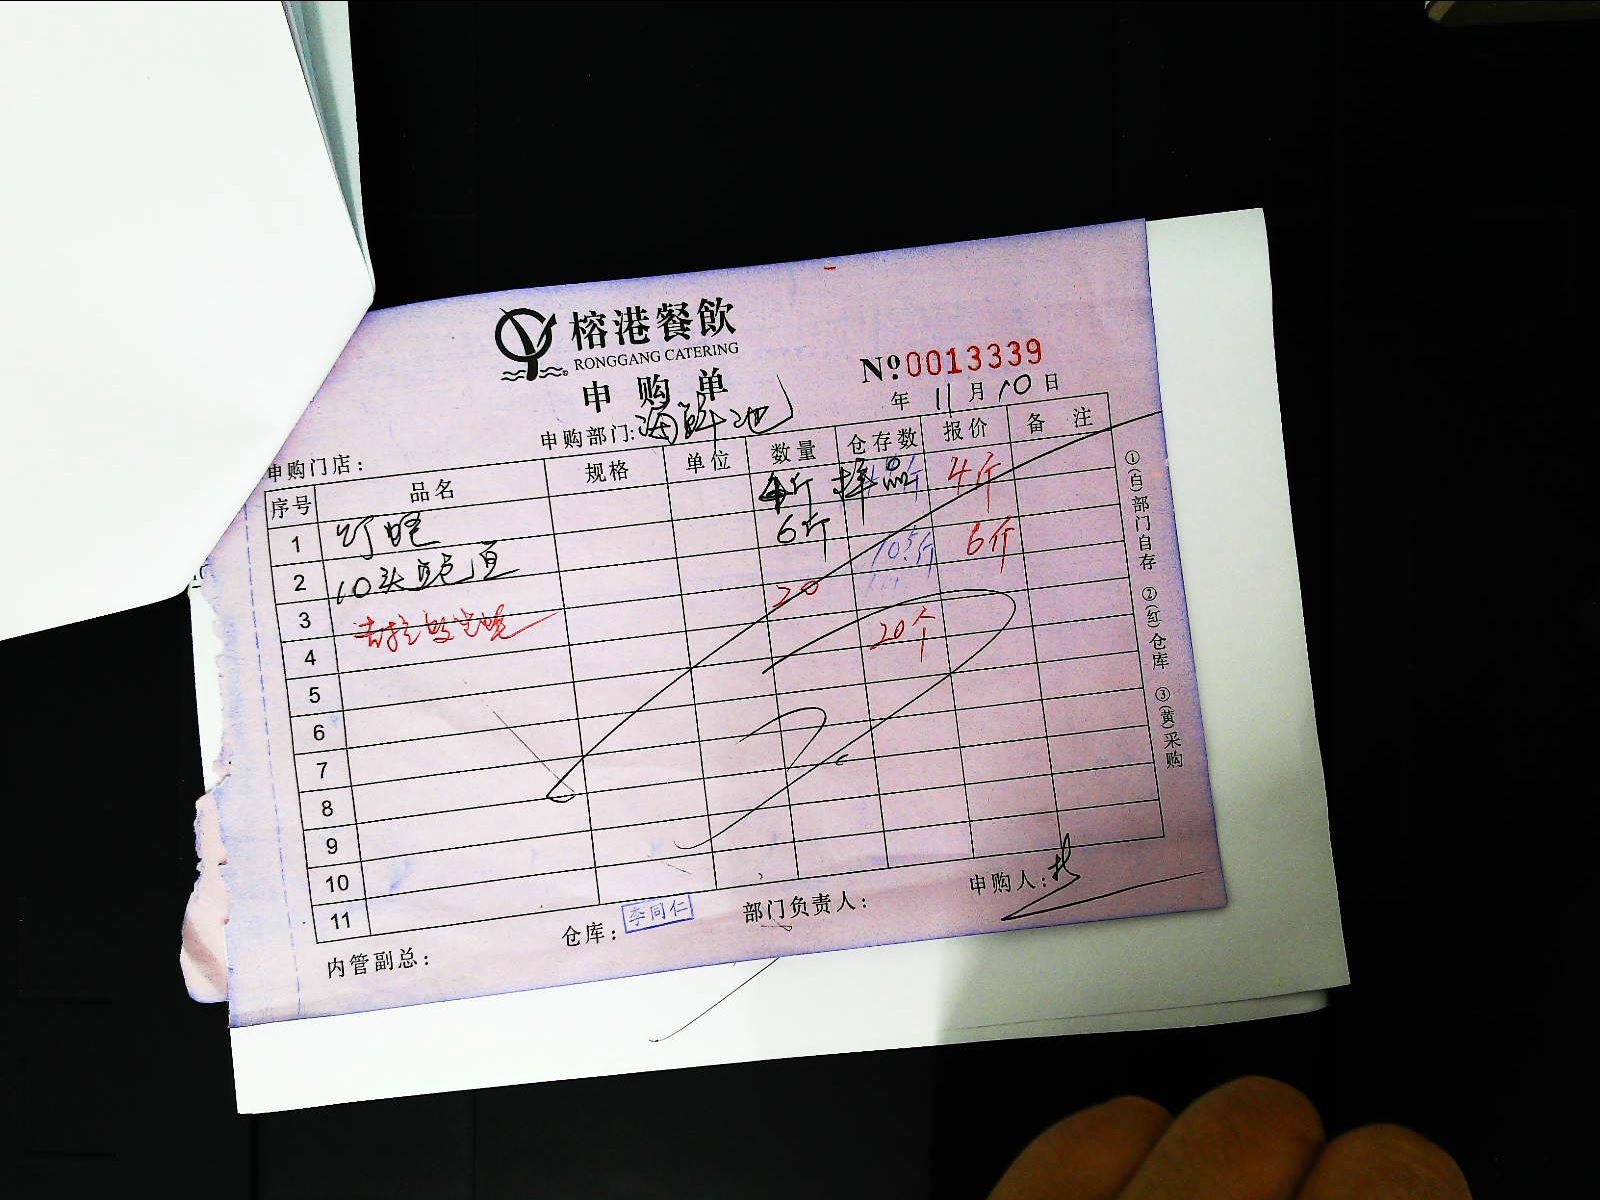 榕港餐飲
RONGGANG CATERING
申购单
№ 0013339
年 11月10日
申购门店: 申购部门:海鲜池
序号 品名 规格 单位 数量 仓存数 报价 备注
1 4斤 样品 4斤
2 10头 6斤 6斤
3 20
4 20个
5
6
7
8
9
10
11
内管副总: 仓库: 李同仁 部门负责人: 申购人:
①(白)部门自存 ②(红)仓库 ③(黄)采购